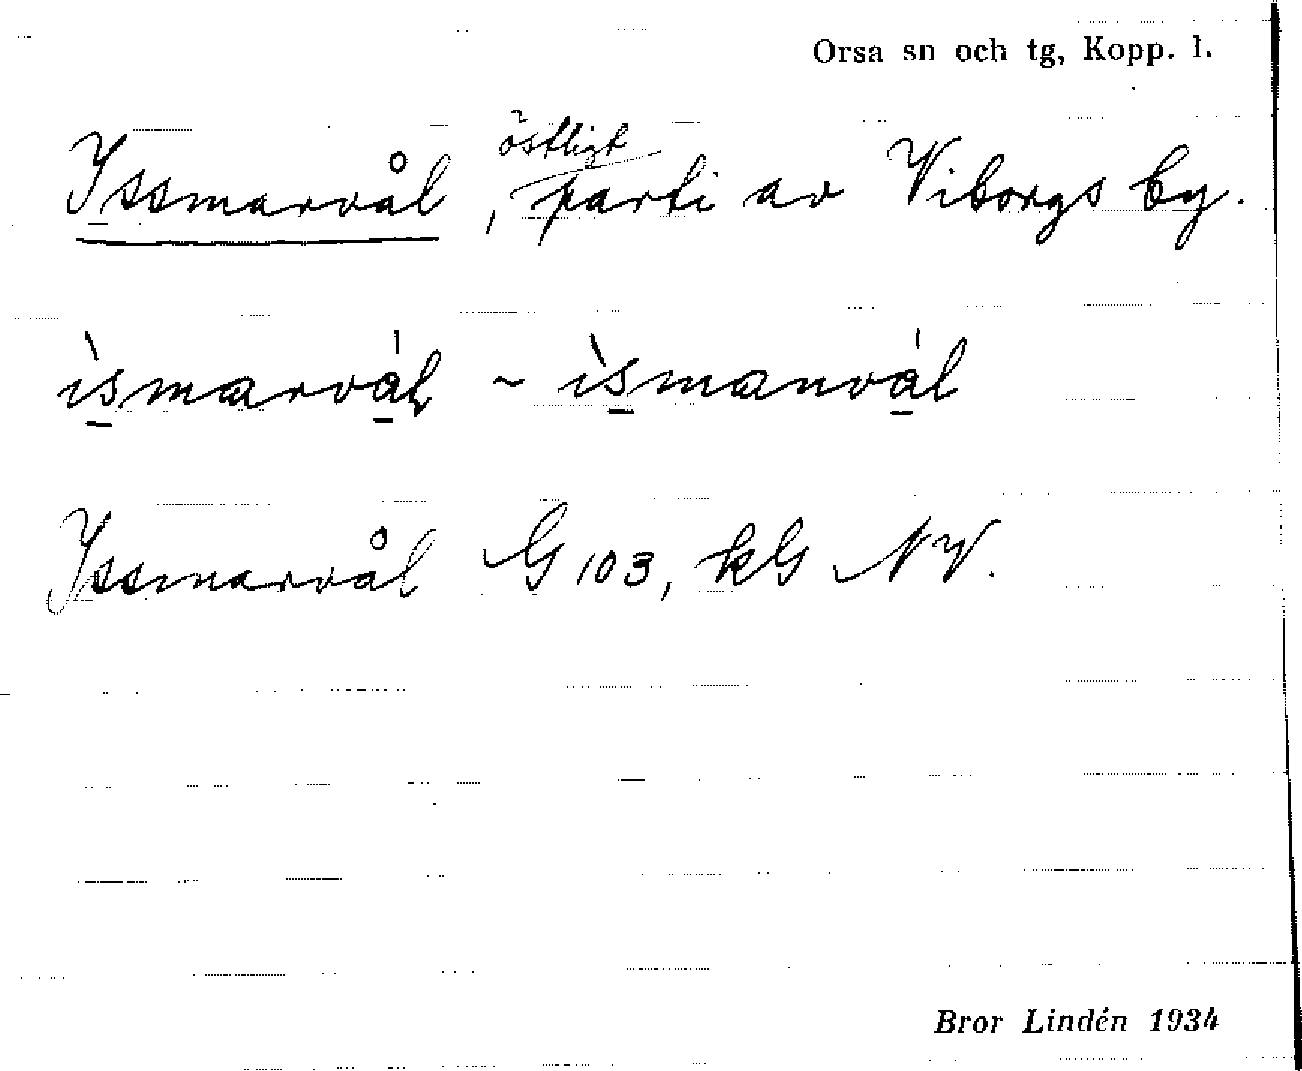 Orsa sn och tg, Kopp. l.
Issmarvål, östligt parti av Viborgs by.
ìsmarvál ~ ìsmanvál
Issmarvål G 103, kG NV.
Bror Lindén 1934